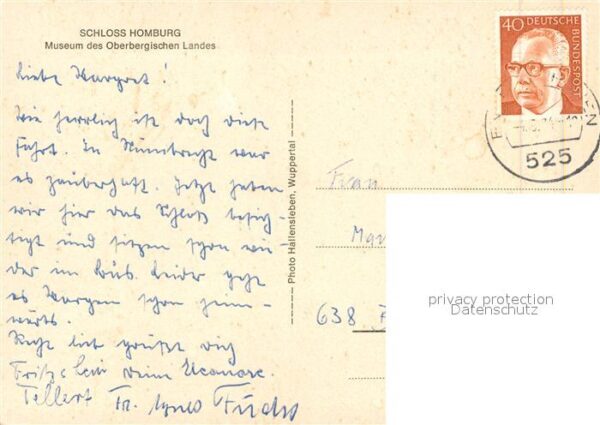 SCHLOSS HOMBURG
Museum des Oberbergischen Landes
Liebe Margret!
Wie herrlich ist doch diese
Fahrt. In Nümbrecht war
es zauberhaft. Jetzt haben
wir hier das Schloß besich-
tigt und sitzen schon wie-
der im Bus. Leider geht
es Morgen schon heim-
wärts.
Recht lieb grüßt Dich
Deine Eleonore.
Tellert Fr. Agnes Fuchs
Photo Hallensleben, Wuppertal
40 DEUTSCHE
BUNDESPOST
525
Frau
Mar
638
privacy protection
Datenschutz